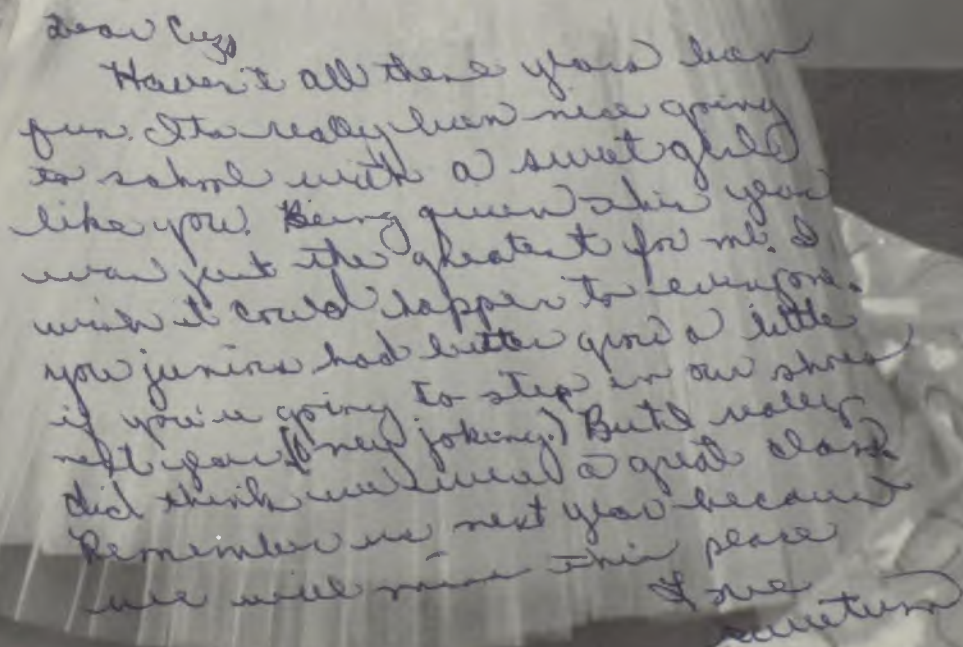 Dear Cuz,
Haven't all these years been
fun. Its really been nice going
to school with a sweet girl
like you. Being queen this year
was just the greatest for me. I
wish it could happen to everyone.
you juniors had better grow a little
if you're going to step in our shoes
next year (me joking.) But I really
did think we were a great class
Remember us next year because
we will miss this place
Love